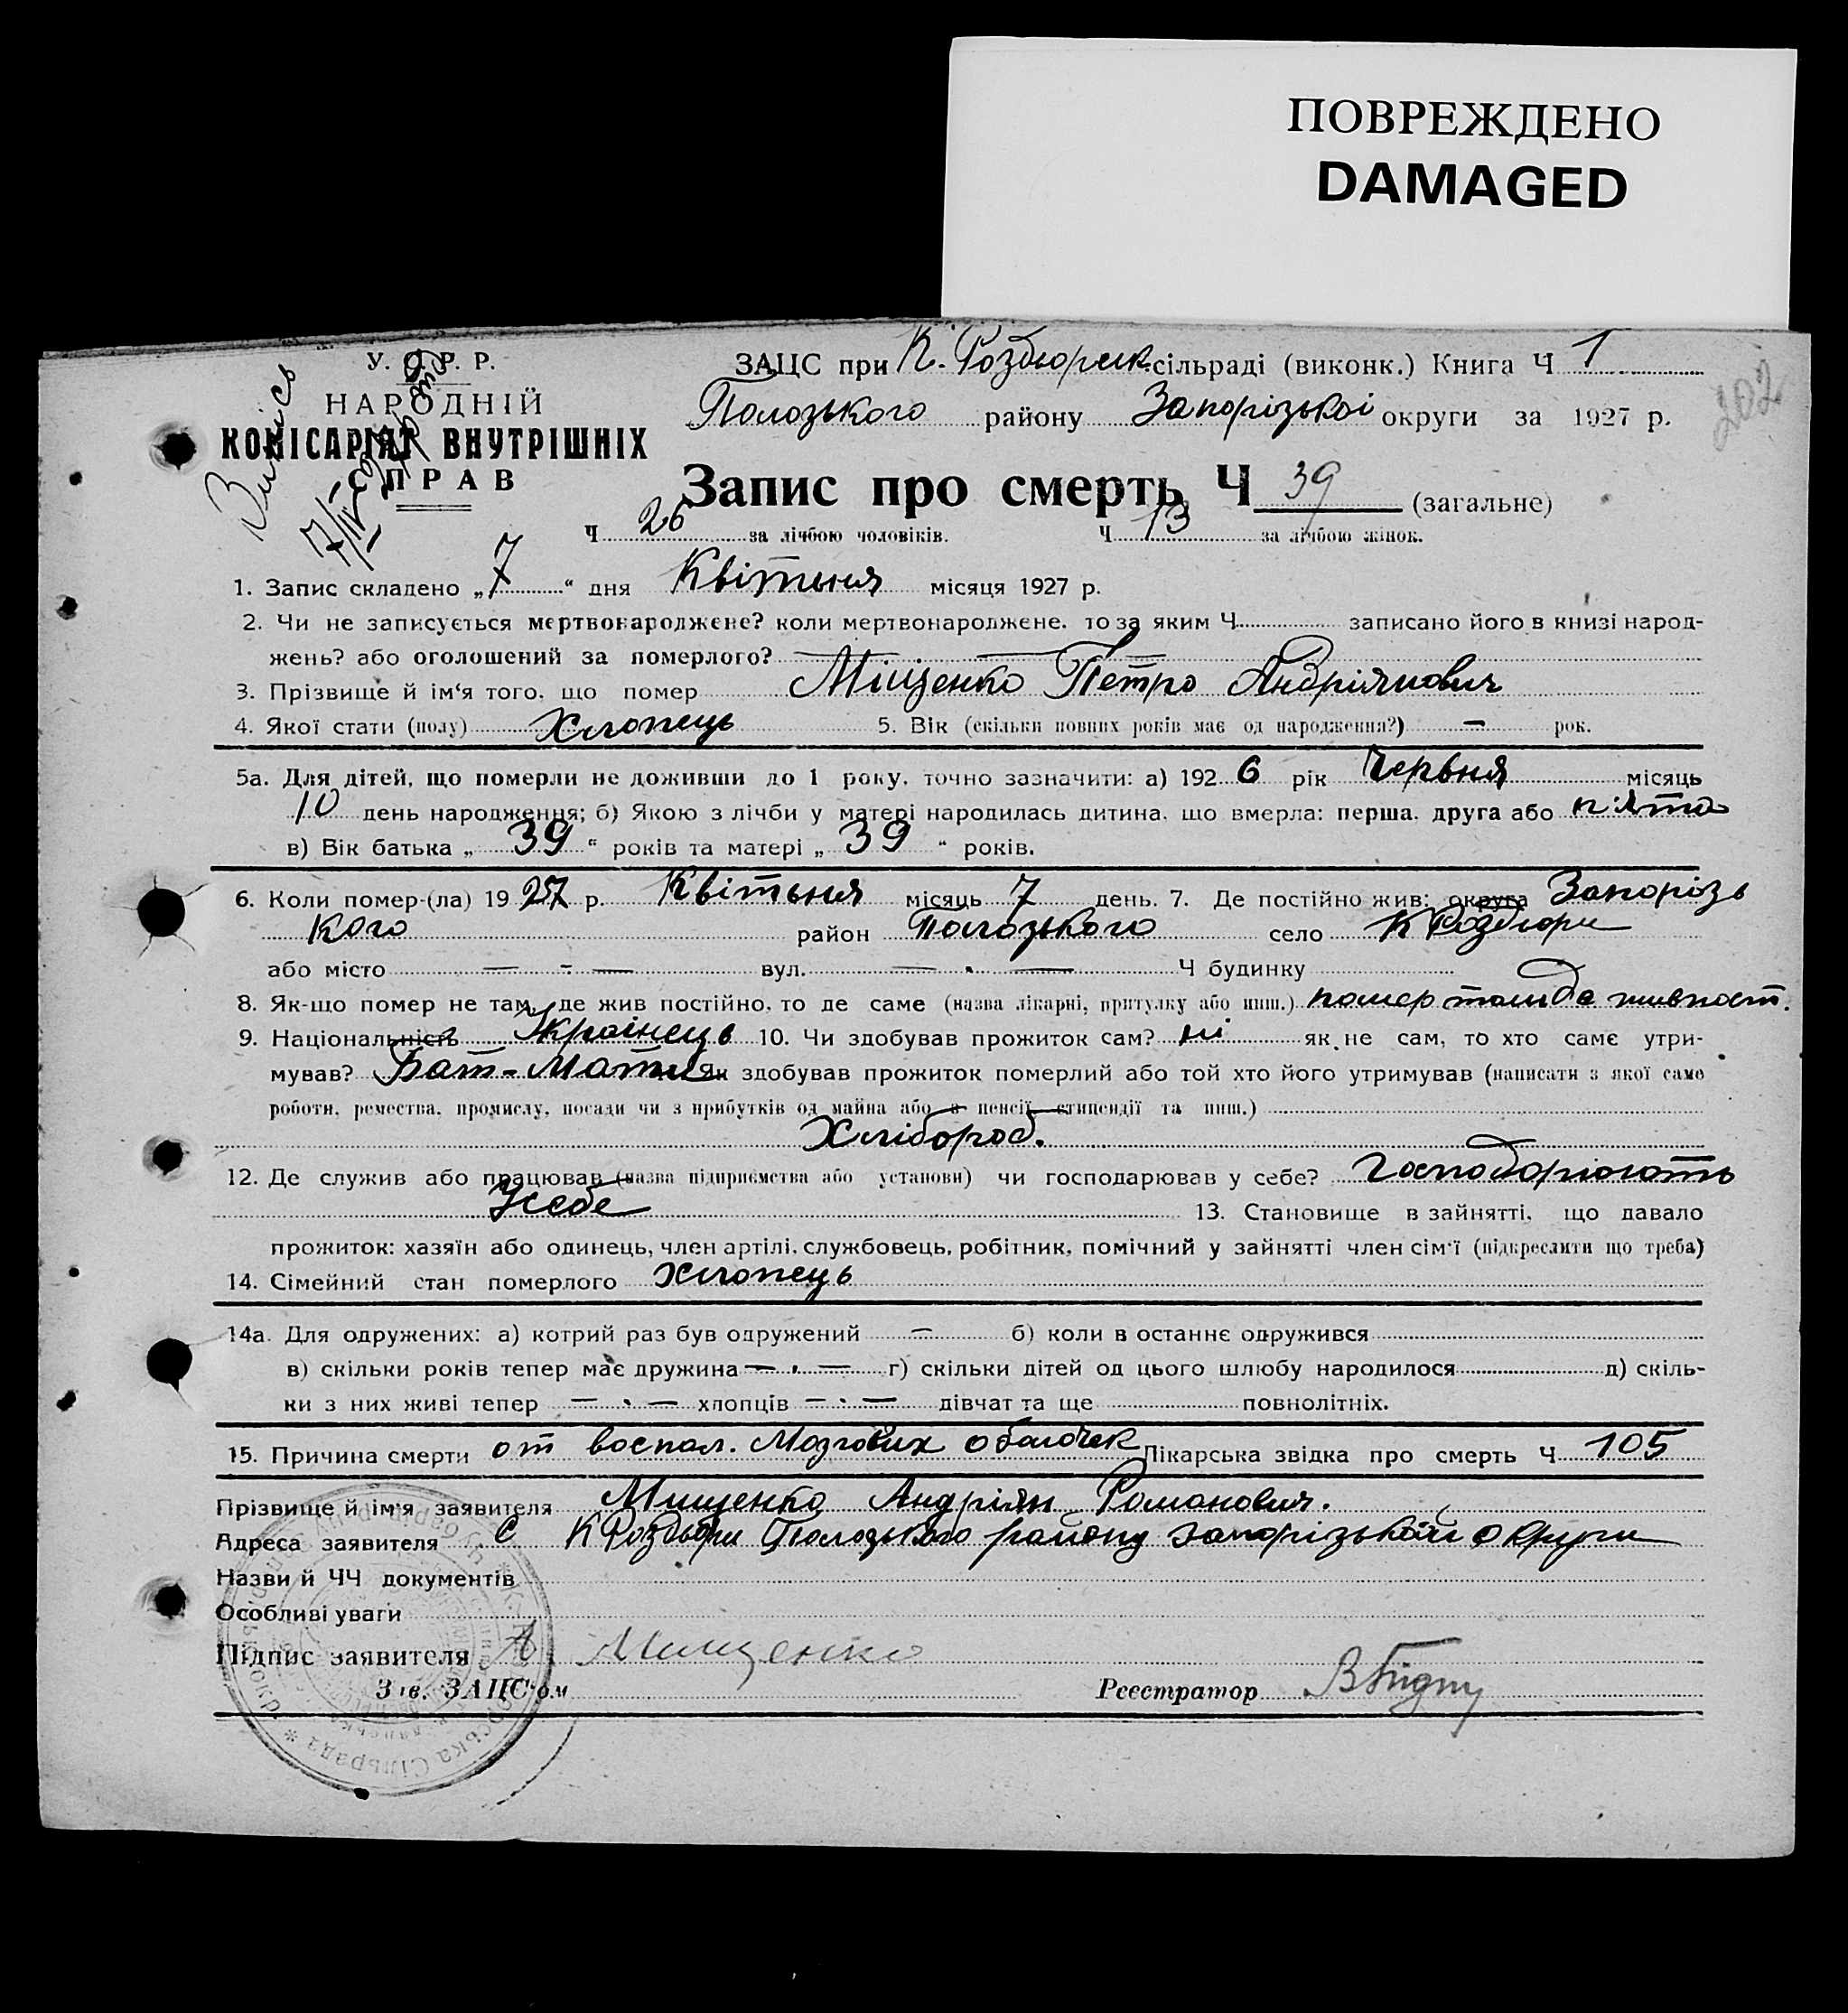 ПОВРЕЖДЕНО
DAMAGED
У. С. Р. Р.
НАРОДНІЙ
КОМІСАРІЯТ ВНУТРІШНІХ
СПРАВ
Випись
7/IV
202
ЗАЦС при К. Роздорськ. сільраді (виконк.) Книга Ч 1
Пологзького району Запорізькоі округи за 1927 р.
Запис про смерть Ч 39 (загальне)
Ч 26 за лічбою чоловіків. Ч 13 за лічбою жінок.
1. Запис складено „7“ дня Квітьня місяця 1927 р.
2. Чи не записується мертвонароджене? коли мертвонароджене, то за яким Ч записано його в книзі народ-
жень? або оголошений за померлого?
3. Прізвище й ім‘я того, що помер Міщенко Петро Андріянович
4. Якої стати (полу) Хлопець 5. Вік (скільки повних років має од народження?) — рок.
5а. Для дітей, що померли не доживши до 1 року, точно зазначити: а) 1926 рік Червня місяць
10 день народження; б) Якою з лічби у матері народилась дитина, що вмерла: перша, друга або п'ята
в) Вік батька „39“ років та матері „39“ років.
6. Коли помер-(ла) 1927 р. Квітьня місяць 7 день. 7. Де постійно жив: округа Запорізь
кого район Пологзького село К Роздори
або місто — - — вул. — . — Ч будинку
8. Як-що помер не там, де жив постійно, то де саме (назва лікарні, притулку або инш.) помер там де жив
9. Національність Українець 10. Чи здобував прожиток сам? ні як не сам, то хто саме утри-
мував? Бат-Мати Як здобував прожиток померлий або той хто його утримував (написати з якої саме
роботи, ремества, промислу, посади чи з прибутків од майна або з пенсії, стипендії та инш.)
Хлібороб.
12. Де служив або працював (назва підприємства або установи) чи господарював у себе? Господарюють
Усебе 13. Становище в зайнятті, що давало
прожиток: хазяїн або одинець, член артілі, службовець, робітник, помічний у зайнятті член сім‘ї (підкреслити що треба)
14. Сімейний стан померлого Хлопець
14а. Для одружених: а) котрий раз був одружений — б) коли в останнє одружився
в) скільки років тепер має дружина — . — г) скільки дітей од цього шлюбу народилося д) скіль-
ки з них живі тепер — . — хлопців — . — дівчат та ще повнолітніх.
15. Причина смерти от воспал. Мозгових оболочек Лікарська звідка про смерть Ч 105
Прізвище й ім‘я заявителя Мищенко Андріян Романович.
Адреса заявителя С К Роздори Пологзького району Запорізькоій округи
Назви й ЧЧ документів
Особливі уваги
Підпис заявителя А Мищенко
Зав. ЗАЦС‘ом Реєстратор